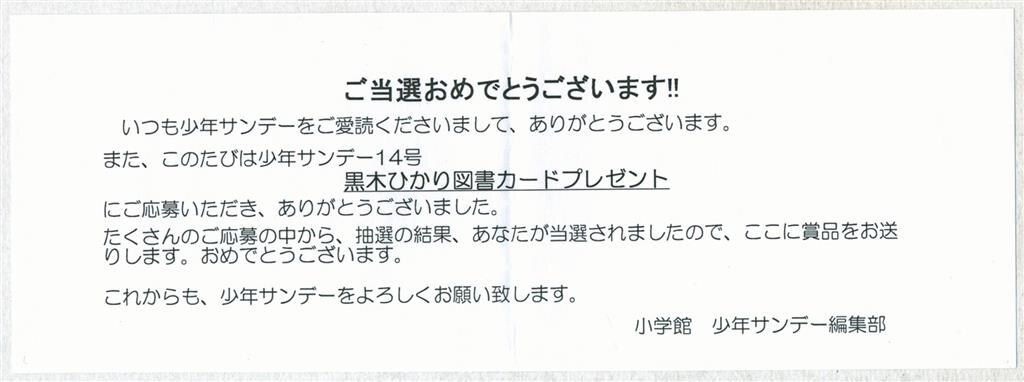 ご当選おめでとうございます!!
いつも少年サンデーをご愛読くださいまして、ありがとうございます。
また、このたびは少年サンデー14号
黒木ひかり図書カードプレゼント
にご応募いただき、ありがとうございました。
たくさんのご応募の中から、抽選の結果、あなたが当選されましたので、ここに賞品をお送
りします。おめでとうございます。
これからも、少年サンデーをよろしくお願い致します。
小学館　少年サンデー編集部